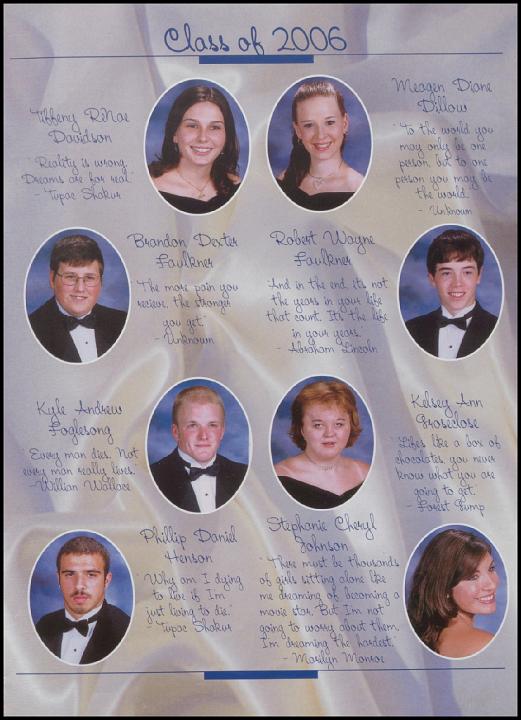 Class of 2006
Tiffeny RiNae
Davidson
"Reality is wrong.
Dreams are for real"
- Tupac Shakur
Meagen Diane
Dillow
"To the world you
may only be one
person, but to one
person you may be
the world.
- Unknown
Brandon Dexter
Faulkner
"The more pain you
recieve, the stronger
you get."
- Unknown
Robert Wayne
Faulkner
"And in the end, it's not
the years in your life
that count. It's the life
in your years."
- Abraham Lincoln
Kyle Andrew
Foglesong
"Every man dies. Not
every man really lives."
-Willian Wallace
Kelsey Ann
Groseclose
"Lifes like a box of
chocolates, you never
know what you are
going to get."
- Forest Gump
Phillip Daniel
Henson
"Why am I dying
to live if I'm
just living to die."
- Tupac Shakur
Stephanie Cheryl
Johnson
"There must be thousands
of girls sitting alone like
me dreaming of becoming a
movie star. But I'm not
going to worry about them.
I'm dreaming the hardest."
- Marilyn Monroe